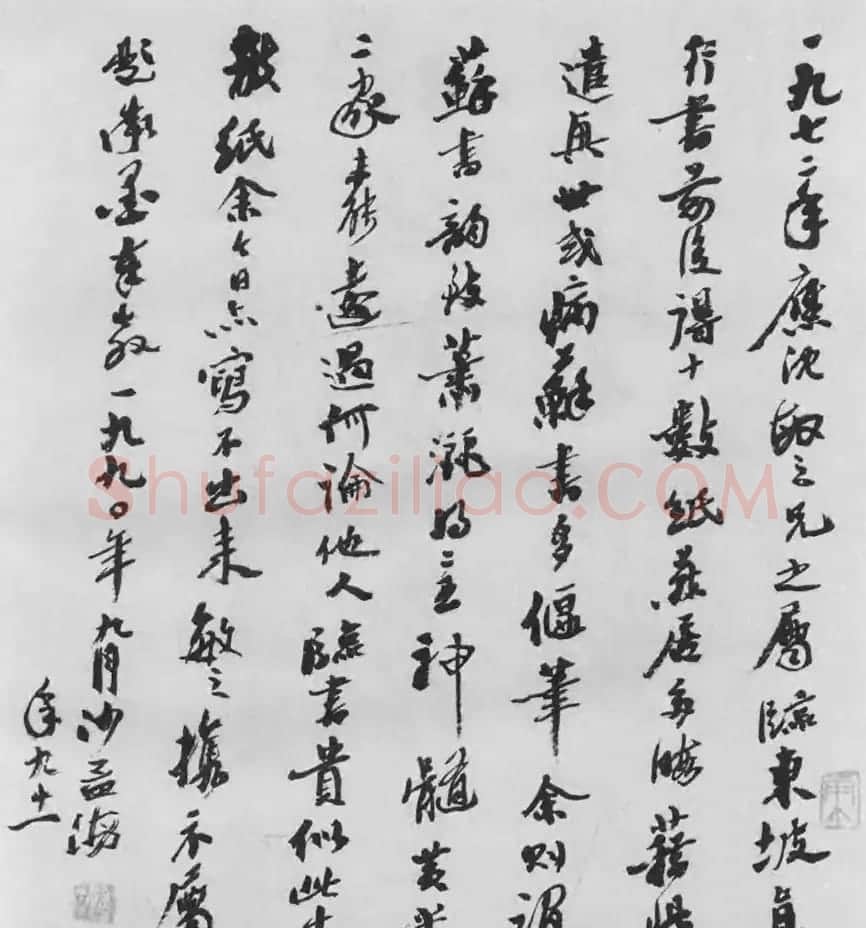 一九七二年應沈敏之兄之屬臨東坡真
行書前後得十數紙燕居多暇藉
遣興世或病蘇書多偃筆余則謂
蘇書韵致蕭灑的是主神髓黃米
二家未能遠過何論他人臨書貴似此
數紙余今日亦寫不出來敏之攜示屬
題漱墨奉教一九九〇年九月沙孟海
年九十一
Shufaziliao.COM